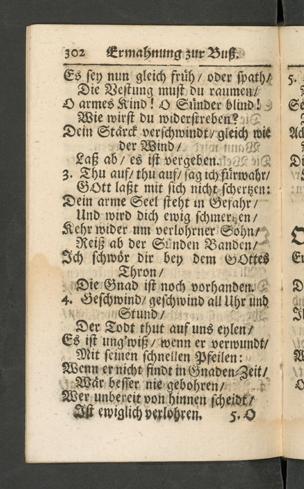 302 Ermahnung zur Buß.
Es sey nun gleich früh/ oder spath/
Die Vestung must du raumen/
O armes Kind! O Sünder blind!
Wie wirst du widerstreben?
Dein Stärck verschwindt/ gleich wie
der Wind/
Laß ab/ es ist vergeben.
3. Thu auf/ thu auf/ sag ich fürwahr/
GOtt laßt mit sich nicht schertzen:
Dein arme Seel steht in Gefahr/
Und wird dich ewig schmertzen/
Kehr wider um verlohrner Sohn/
Reiß ab der Sünden Banden/
Ich schwör dir bey dem GOttes
Thron/
Die Gnad ist noch vorhanden.
4. Geschwind/ geschwind all Uhr und
Stund/
Der Todt thut auf uns eylen/
Es ist ung'wiß/ wenn er verwundt/
Mit seinen schnellen Pfeilen:
Wenn er nicht findt in Gnaden-Zeit/
Wär besser nie gebohren/
Wer unbereit von hinnen scheidt/
Ist ewiglich verlohren. 5. O